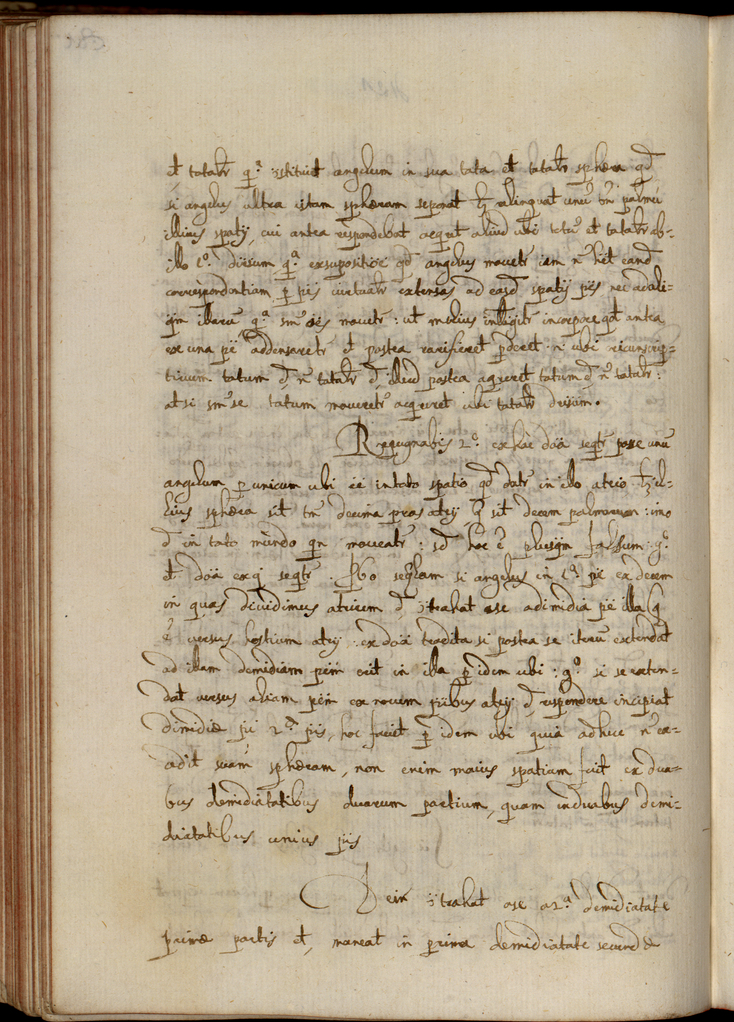 et totalr q.ª ↄstituit angelum in sua tota et totalr sphæra qd
si angelus ultra istam sphæram seponat relinquat unũ tm̃ palmũ
illius spatij, cui antea respondebat acquet aliud ubi totũ et totalr ab-
illo 1.º diũsum, q.ª ex supositioẽ qd angelus movetr iam ñ het eand
correspondentiam p̱ pẽs virtualr extensas ad easd spatij pẽs nec ad ali-
qm illarũ q.ª sm̃ oẽs movetr: ut melius intelligitr in corpore qd antea
ex una pẽ addensaretr et postea rarifieret p̱deret ñ ubi circunscrip-
tivum totum d, ñ totalr d, illud postea aqueret totum d, ñ totalr:
at si sm̃ se totum moveretr acqueret ubi totalr diũsum.
Repugnabis 2.º ex hac doã seqtr posse unũ
angelum p̱ unicum ubi eẽ in toto spatio qd datr in illo atrio il-
lius sphæra sit tm̃ decima pars atrij q sit decem palmorum: imo
d in toto mundo qn moveatr: sd hoc ẽ plusqm falsum: g.º
et doã ex q seqtr. Pbo seqlam si angelus in 1.ª pẽ ex decem
in quas dividimus atrium d, ↄtrahat se ad imidiã pẽ illã q
ẽ versus hostium atrij: ex doã tradita si postea se iterũ extendat
ad illam demidiam pẽm erit in illa p̱ idem ubi: g.º si se exten-
dat versus aliam pẽm ex novem pẽibus atrij d, respondere incipiat
dimidiæ pẽ 2.ª pẽs, hoc fiet p̱ idem ubi quia adhuc ñ ex-
cedit suam sphæram, non enim maius spatium fuit ex dua-
bus demidiatatibus duarum partium, quam in duabus demi-
diatatibus unius pẽs
Dein ↄtrahat se a 2.ª demidiatate
primæ partis et, maneat in prima demidiatate secundæ